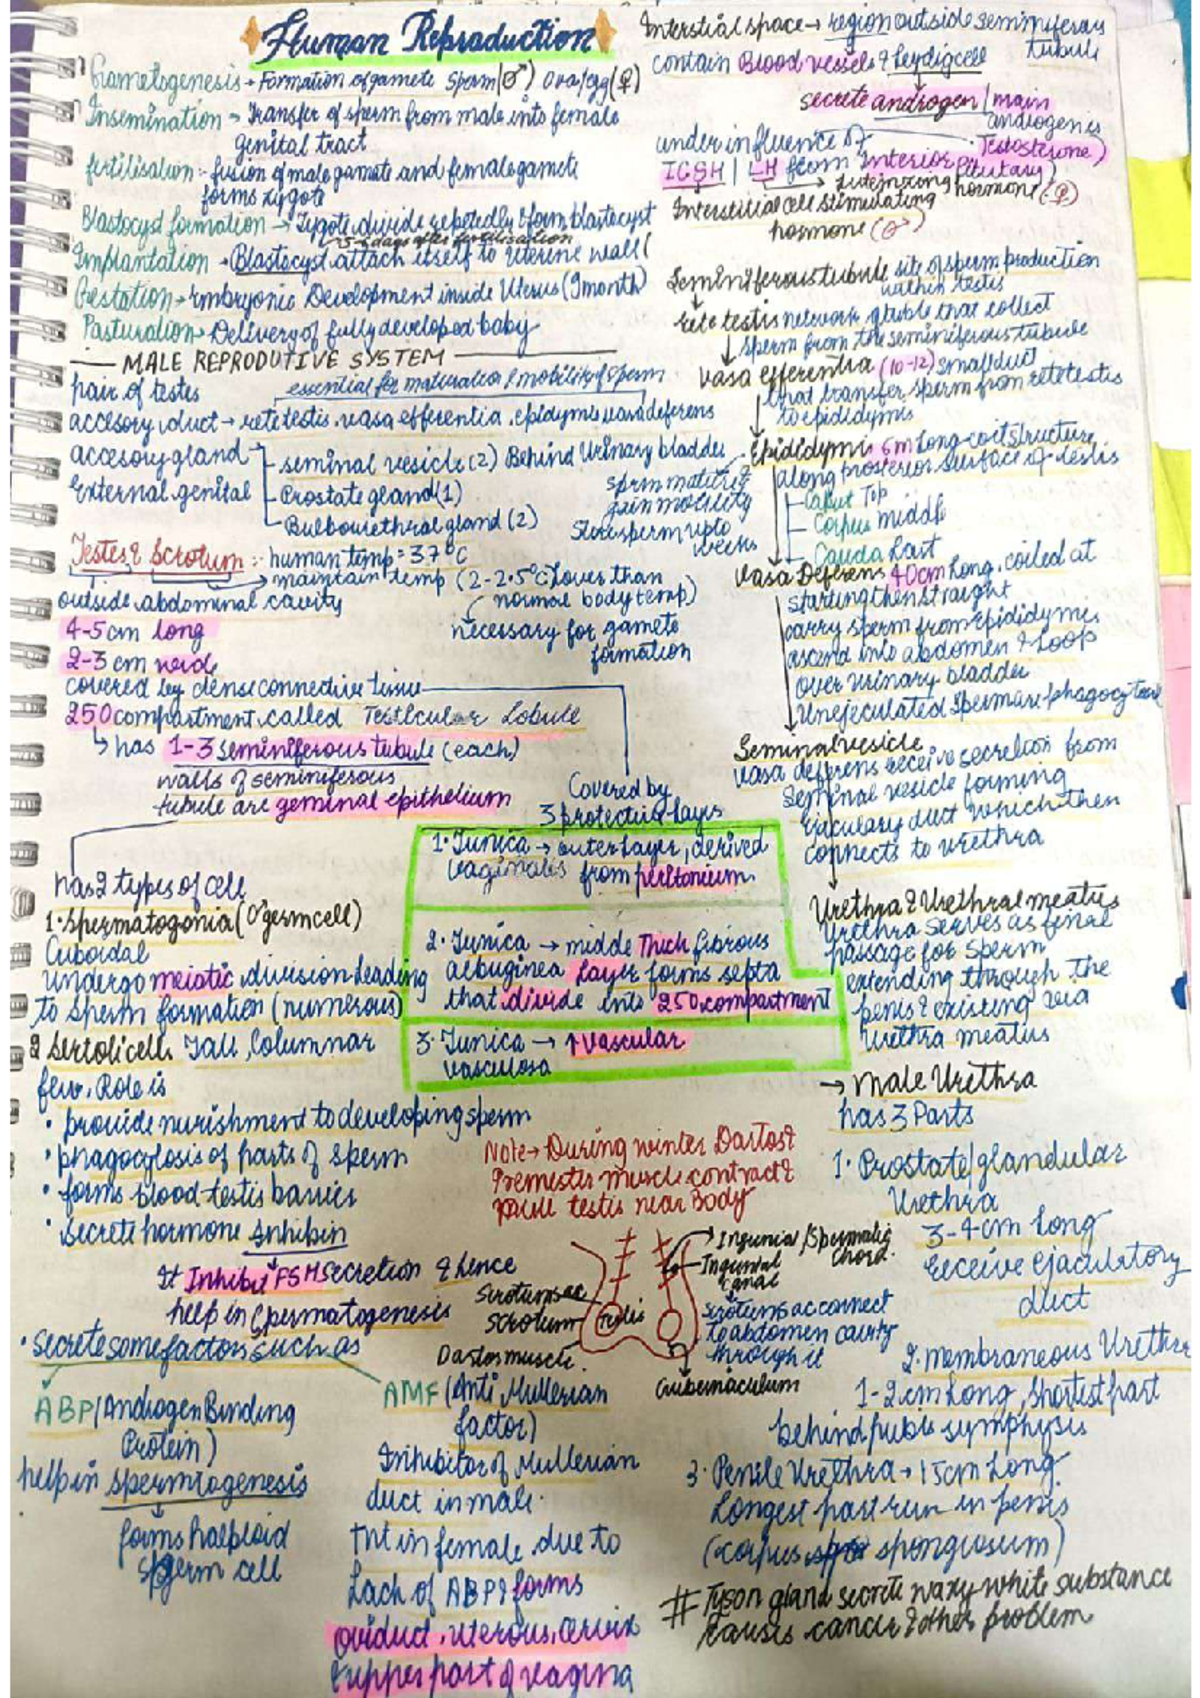 Human Reproduction
Gametogenesis → Formation of gamete Sperm (♂) Ova/egg (♀)
Insemination → Transfer of sperm from male into female
genital tract
fertilisation :- fusion of male gamete and female gamete
forms zygote
Blastocyst formation → Zygote divide repetedly & form blastocyst
5-6 days after fertilisation
Implantation → Blastocyst attach itself to uterine wall (
Gestation → Embryonic Development inside Uterus (9 month)
Pasturation → Delivery of fully developed baby
MALE REPRODUTIVE SYSTEM
pair of testes essential for maturation & mobility of sperm
accesory duct → rete testis, vasa efferentia, epidymis vasa deferens
accesory gland
seminal vesicle (2) Behind Urinary bladder
External genital
Prostate gland (1)
Bulbourethral gland (2)
Testes & Scrotum :- human temp = 37°C
maintain temp (2-2.5°C lower than
normal body temp)
outside abdominal cavity
necessary for gamete
formation
4-5cm long
2-3 cm wide
covered by dense connective tissue
250 compartment called Testicular Lobule
↳ has 1-3 seminiferous tubule (each)
walls of seminiferous
tubule are geminal epithelium
Covered by
3 protective layer
1. Tunica → outer layer, derived
vaginalis from peritonium
2. Tunica → midde Thick fibrous
albuginea layer forms septa
that divide into 250 compartment
3. Tunica → ↑ vascular
vasculosa
has 2 types of cell
1. Spermatogonia (♂ germ cell)
Cuboidal
undergo meiotic division leading
to sperm formation (numerous)
2 Sertoli cells Tall, Columnar
few. Role is
• provide nurishment to developing sperm
• phagocytosis of parts of sperm
• forms blood testis barrier
• secrete hormone Inhibin
It Inhibit FSH secretion & hence
help in Spermatogenesis
• secrete some factors such as
ABP (Androgen Binding
Protein)
help in spermiogenesis
forms haploid
sperm cell
AMF (Anti Mullerian
factor)
Inhibitor of Mullerian
duct in male
TNT in female due to
Lack of ABP & forms
oviduct, uterous, cervix
& upper part of vagina
Note → During winter Dartos &
Cremester muscle contract &
pull testis near Body
Ingunial / Spermatic
chord
Ingunial
canal
Scrotum sac
scrotum
Testis
Scrotum sac connect
to abdomen cavity
through it
Dartos muscle
Gubernaculum
Interstial space → region outside seminiferous
tubule
contain Blood vessels & Leydig cell
secrete androgen / main
androgenes
Testosterone)
under influence of
ICSH / LH from Interior pituitary)
Luteinizing hormone (♀)
Interstitial cell stimulating
hormone (♂)
Seminiferous tubule site of sperm production
within testis
rete testis network of tubule that collect
sperm from the seminiferous tubule
vasa efferentia (10-12) small duct
that transfer sperm from rete testis
to epididymis
Epididymis 6m long coil structure
along prosterior surface of testis
sperm mature &
gain motility
Store sperm upto
weeks
Caput Top
Corpus middle
Cauda Last
Vasa Deferens 40cm long, coiled at
starting then straight
carry sperm from epididymis
ascend into abdomen & loop
over urinary bladder
Unejeculated Sperm are phagocytosed
Seminal vesicle
vasa deferens receive secretion from
Seminal vesicle forming
ejaculary duct which then
connects to urethra
Urethra & Urethral meatus
Urethra serves as final
passage for sperm
extending through the
penis & existing via
Urethra meatus
→ Male Urethra
has 3 Parts
1. Prostate/glandular
Urethra
3-4cm long
receive ejaculatory
duct
2. Membraneous Urethra
1-2cm long, shortest part
behind pubic symphysis
3. Penile Urethra → 15cm long
longest part run in penis
(corpus spongiosum)
# Tyson gland secrete waxy white substance
causes cancer & other problem